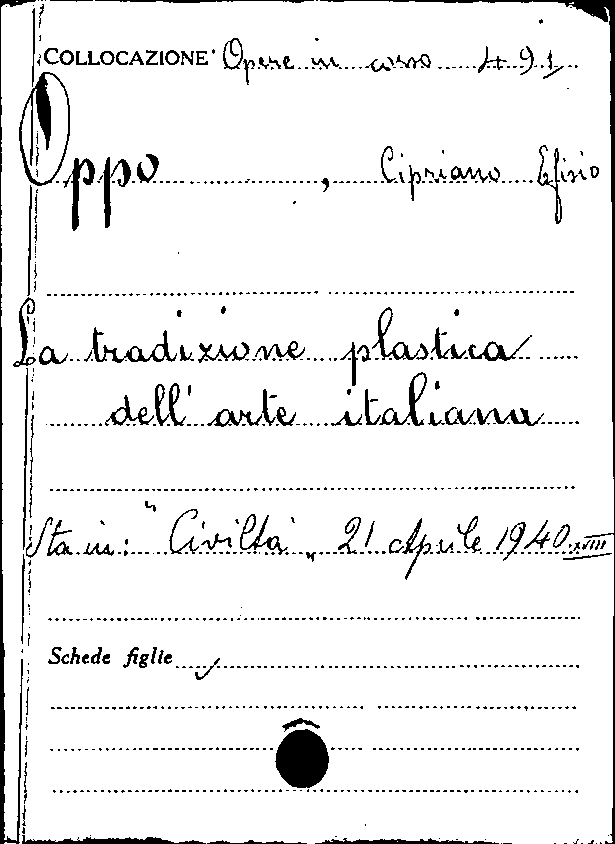 COLLOCAZIONE Opere in corso 491
Oppo, Cipriano Efisio
La tradizione plastica
dell'arte italiana
Sta in: "Civiltà" 21 Aprile 1940 XVIII
Schede figlie ✓